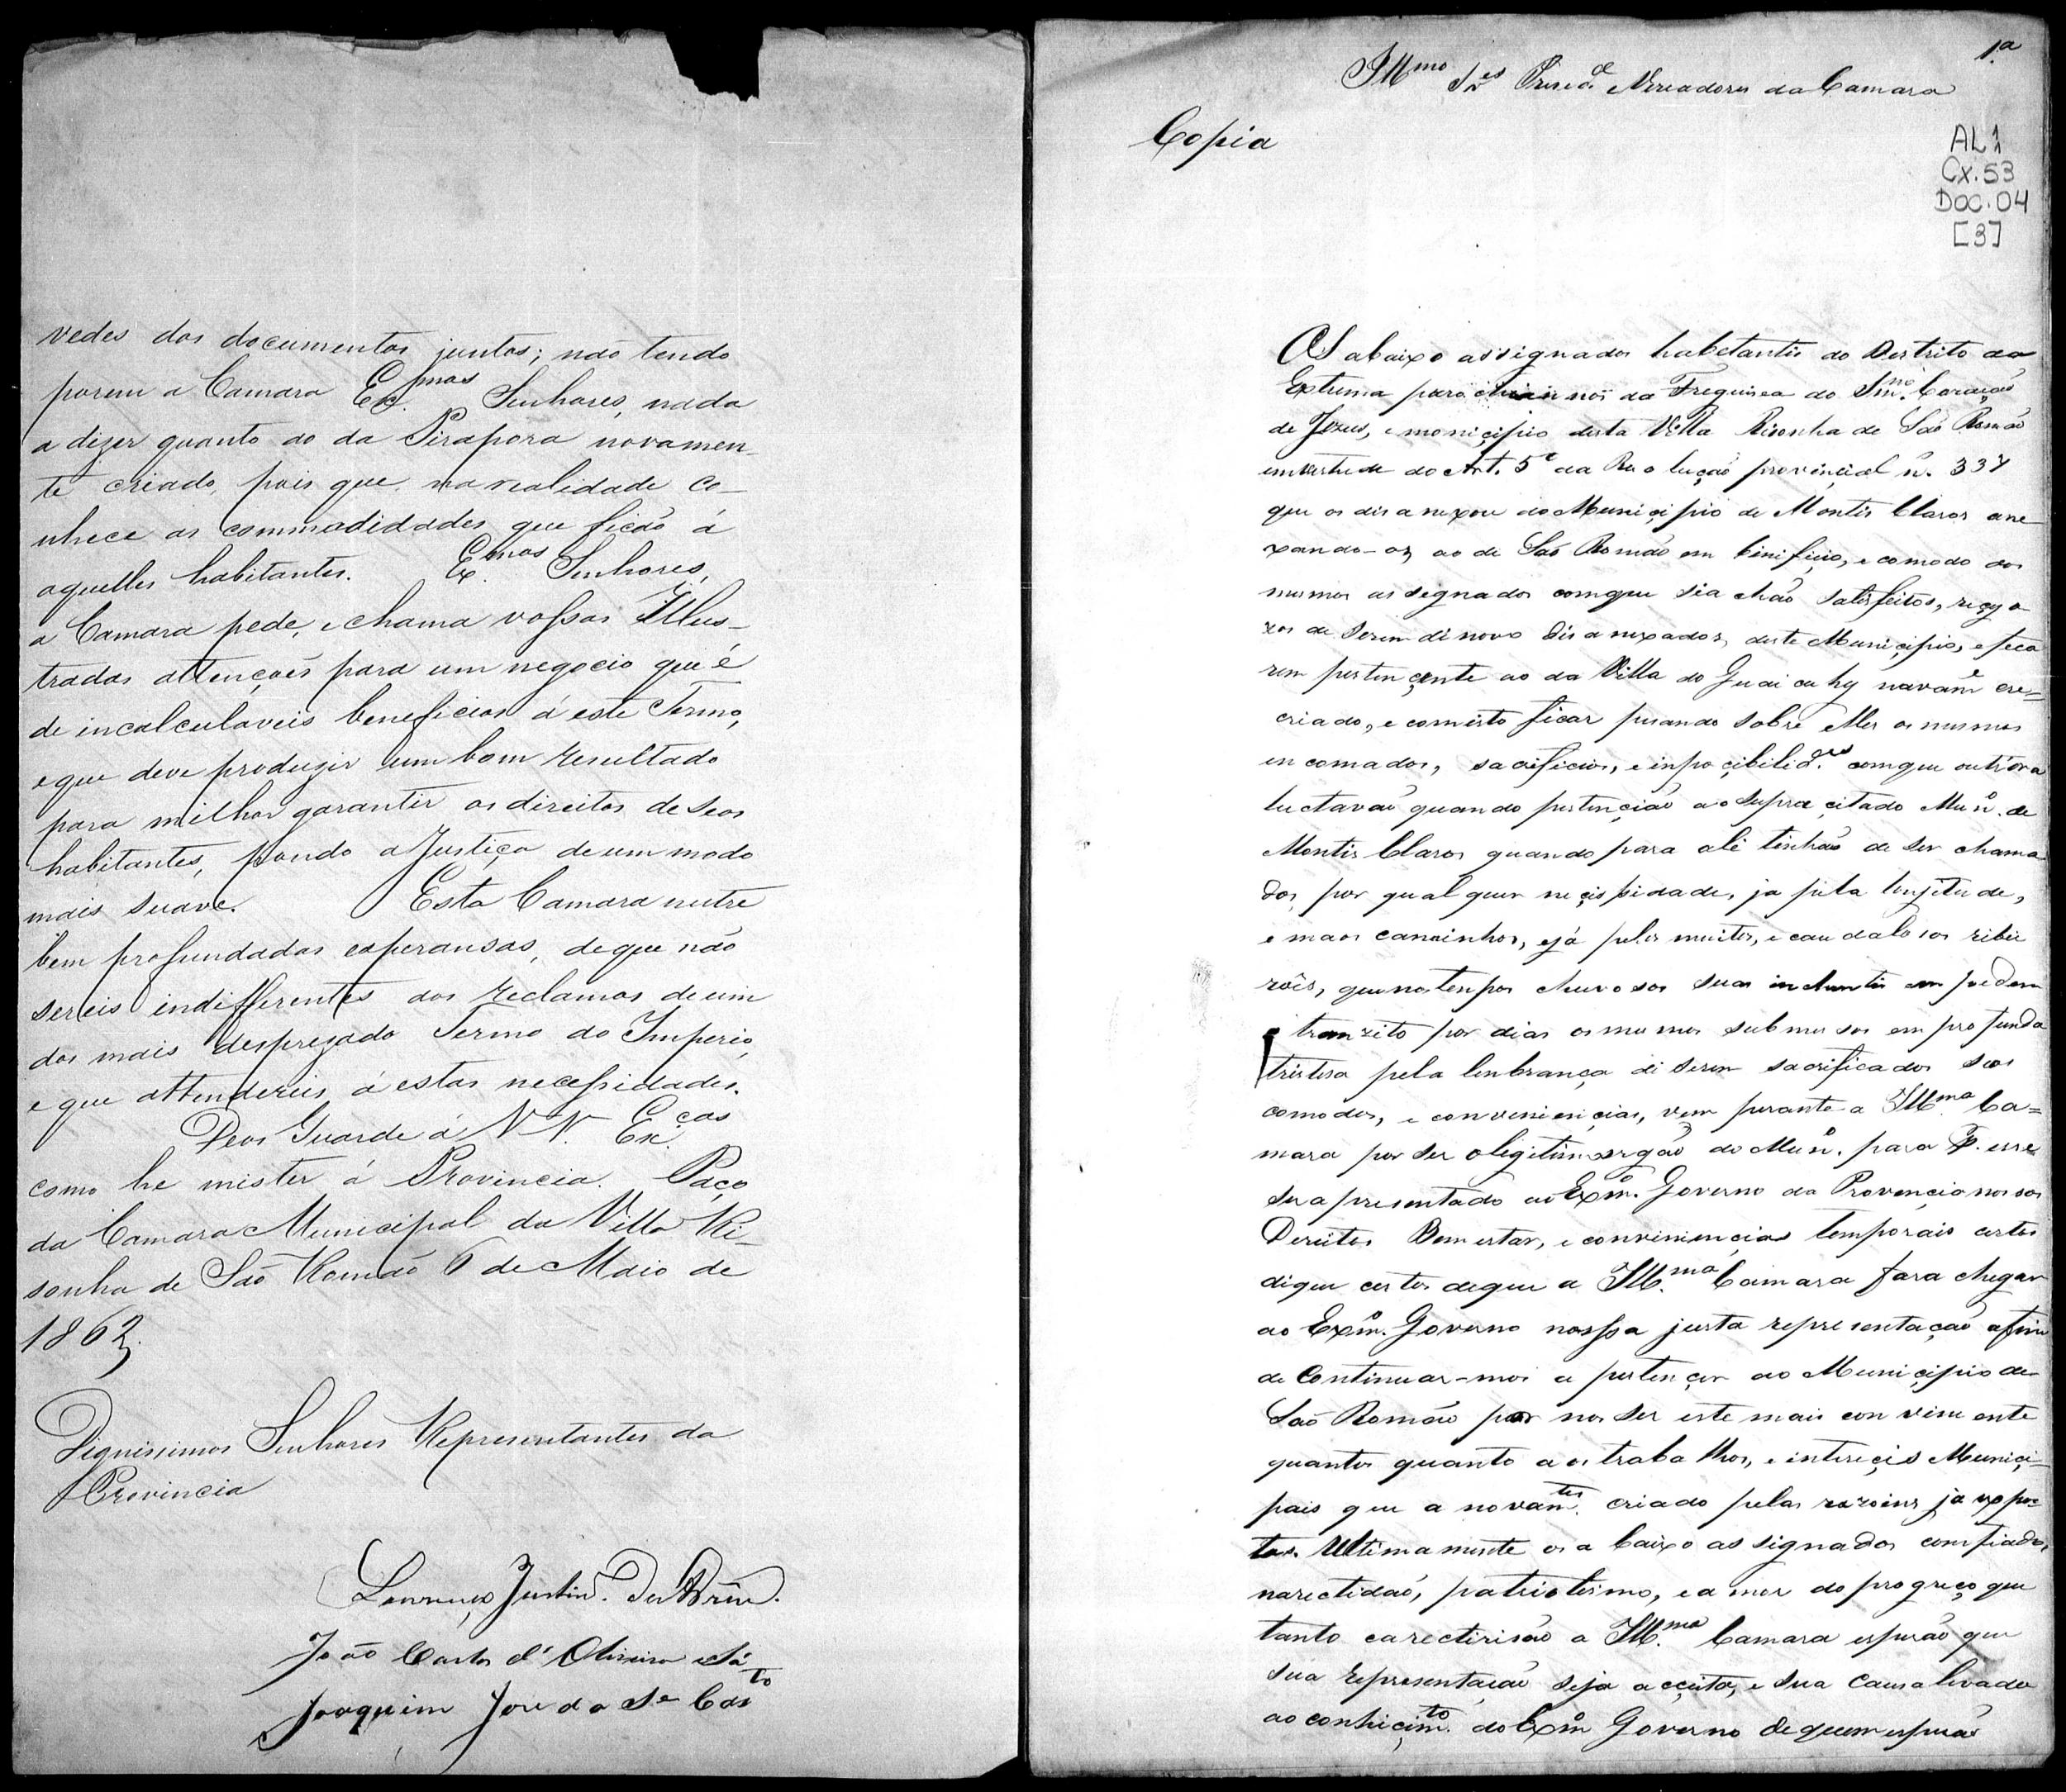 vedes dos documentos juntos; não tendo
porem a Camara Ex.mos Senhores, nada
a dizer quanto ao da Pirapora novamen-
te criado, pois que na realidade co-
nhece as commodidades que ficão á
aquelles habitantes. Ex.mos Senhores,
a Camara pede, e chama vossas Illus-
tradas attenções para um negocio que é
de incalculaveis beneficios á este Termo,
e que deve produzir um bom resultado
para milhor garantir os direitos de seos
habitantes, pondo a Justiça de um modo
mais suave. Esta Camara nutre
bem profundadas esperansas, de que não
sereis indifferentes aos reclamos de um
dos mais despresado Termo do Imperio,
e que attendereis á estas necessidades.
Deos Guarde á VV. Ex.cas
como he mister á Provincia. Paço
da Camara Municipal da Villa Ri-
sonha de São Romão 6 de Maio de
1862.
Dignissimos Senhores Representantes da
Provincia
Lourenço Justin.
João Carlos d'Oliveira e Sá
Joaquim Jose da Sª Casto
1.a
Illmo Sres Presid.e e Vereadores da Camara
Copia
AL1
Cx.53
Doc.04
[3]
Os abaixo assignados habetantes do Destrito da
Extrema parochianos da Freguisea do Smº. Coração
de Jezus, e moniçipio desta Villa Risonha de São Romão
em vertude do Art. 5º da Resolução provinçial n. 337
que os disanexou do Muniçipio de Montes Claros ane
xando-os ao de São Romão em binifiçio, e comodo dos
mesmos assegnados com que sia chão satisfeitos, reçeo
zos de serem dinovo disanexados deste Muniçipio, e feca
rem pertençente ao da Villa do Guaicuhy navame cre=
criado, e comisto ficar pesando sobre elles os mesmos
encomados, sacrificios, e inpoçibilid.des comque outrora
luctavaõ quando pertençiaõ ao supra çitado Mun. de
Montes Claros quando para ali tinhão de ser chama
dos por qualquer neçissidade, ja pela lonjetude,
e maos caminhos, e já pelos muitos, e caudalosos ribei
rões, que nos tenpos chuvosos suas inchentes empedem
o tranzito por dias os mesmos submersos em profunda
tristesa pela lenbrança di serem sacrificados seos
comodos, e conveniencias, vem perante a Illma. Ca=
mara por ser o legitimo orgão do Mun. para P. esse
ser apresentado ao Exm. Governo da Provençia nossos
Dereitos Bem estar, e conviniencias temporais certos
digu certos de que a Illma. Camara fara chegar
ao Exm. Governo nossa justa representação afim
de Continuar-mos a pertençer ao Muniçipio de
São Romão por nos ser este mais conviniente
quantos quanto aos trabalhos, e intereçes Muniçi-
pais que a novamtes. criado pelas razoens ja expos-
tas. Ultimamente os abaixo assignados comfiados
na rectidaõ, patriotismo, e amor do progreço que
tanto carectirisão a Illma. Camara esperão que
sua representação seja acçeita, e sua causa levada
ao conhiçimto. do Exm Governo de quem esperão